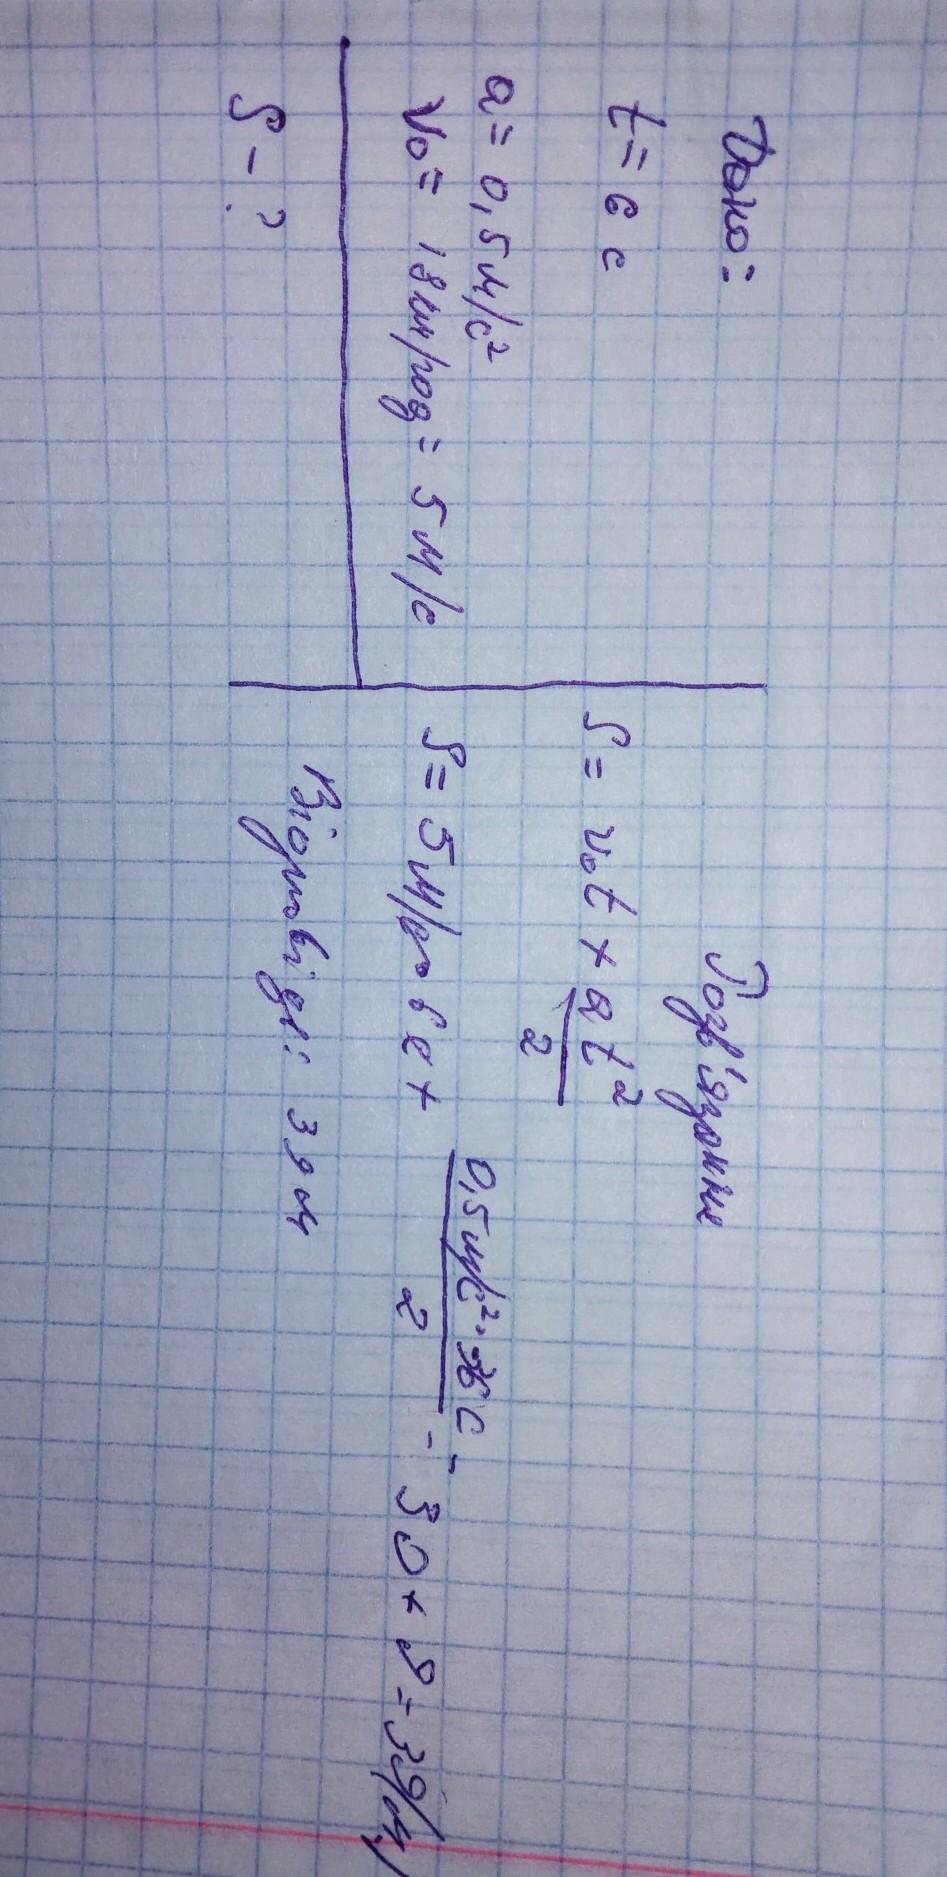 Дано:
t = 6 c
a = 0,5 м/с²
V₀ = 18 км/год = 5 м/с
S - ?
Розв'язання
S = v₀t + at²/2
S = 5 м/с · 6 с + 0,5 м/с² · 36 с/2 = 30 + 9 = 39 (м)
Відповідь: 39 м